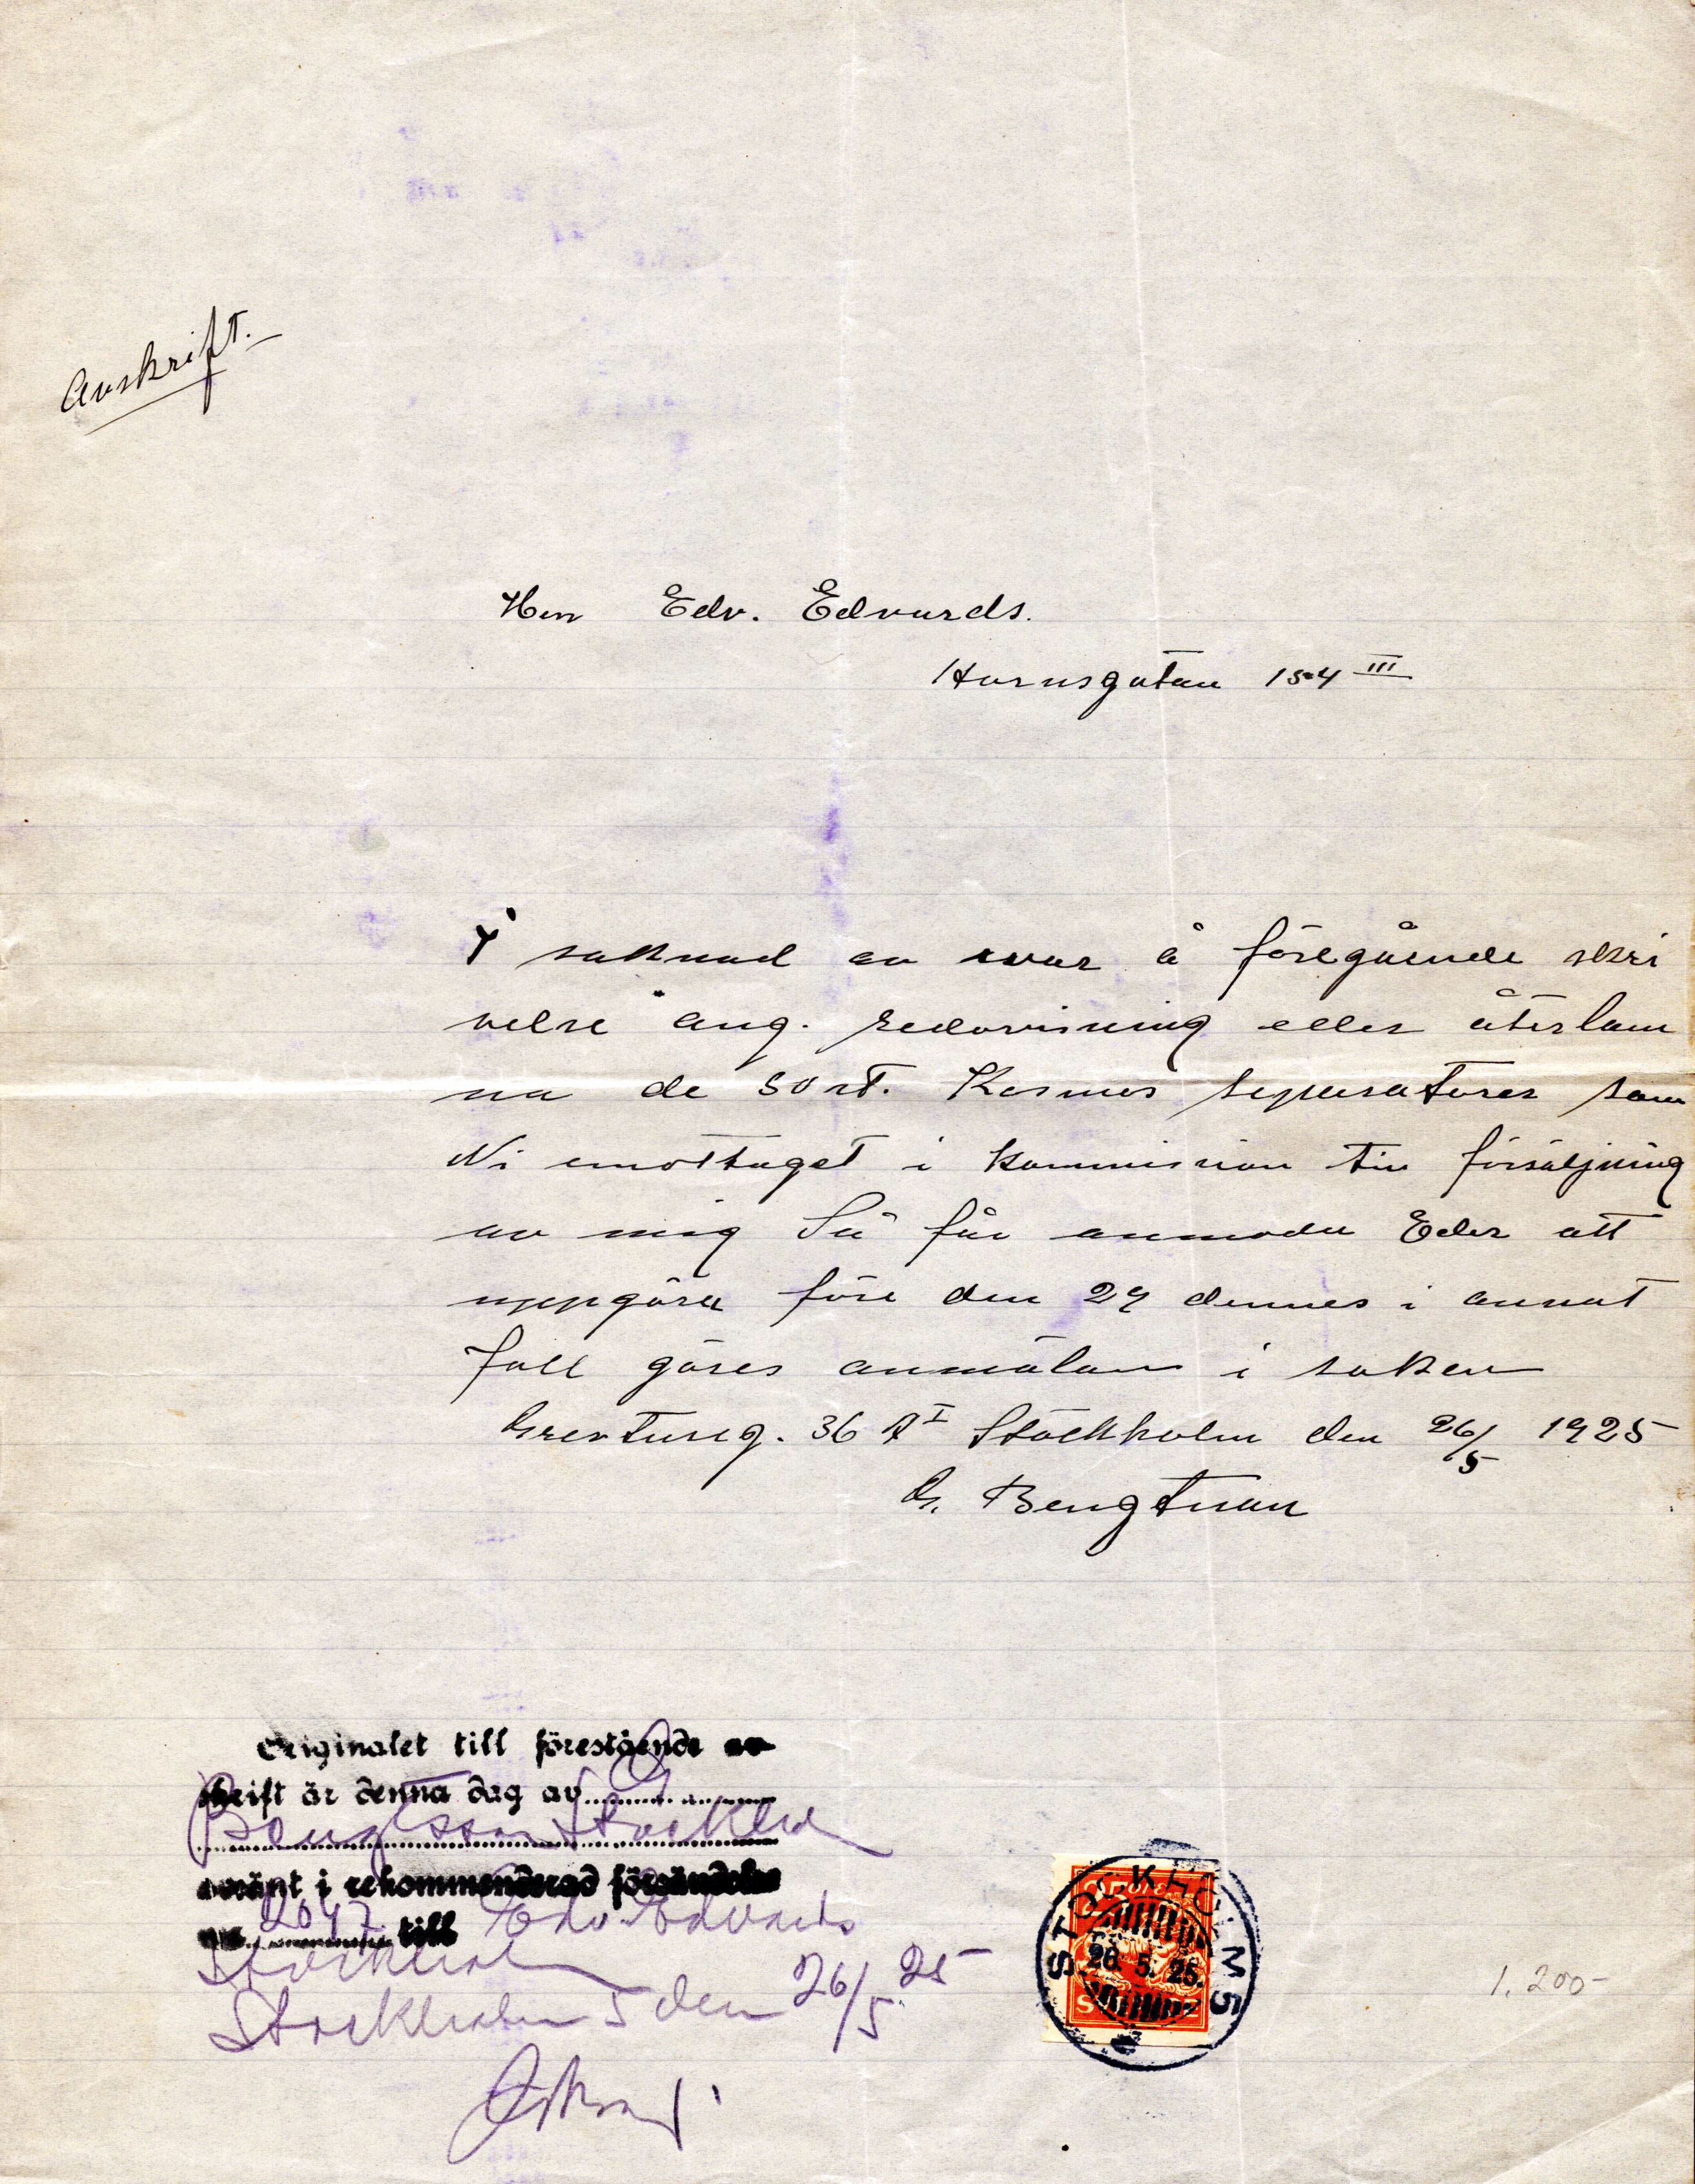 Avskrift.
Herr Edv. Edvards.
Hornsgatan 154 III
I saknad av svar å föregående skri
velse ang. redovisning eller återläm
na de 50 st. Kosmos Separatorer som
Ni emottaget i kommission till försäljning
av mig Så får anmoda Eder att
uppgöra före den 29 dennes i annat
fall göres anmälan i saken
Grevtureg. 36 A I Stockholm den 26/5 1925
G. Bengtsson
Originalet till förestående av
skrift är denna dag av G
Bengtsson Stockholm
avsänt i rekommenderad försändelse
till Edv Edvards
Stockholm
Stockholm 5 den 26/5 25
STOCKHOLM 5
26. 5. 25.
1.200-